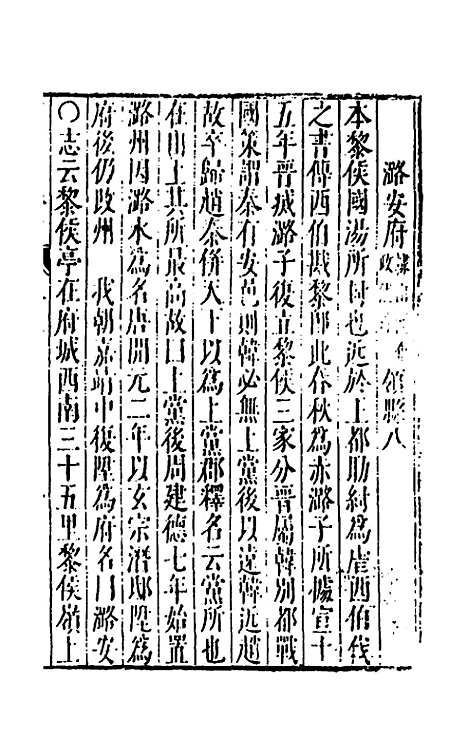 潞安府 領縣八
本黎侯國湯所封也近於上都助紂為虐西伯伐
之書傳西伯戡黎即此春秋為赤潞子所據宣十
五年晉滅潞子復立黎侯三家分晉屬韓別都戰
國策謂秦有安邑則韓必無上黨後以遠韓近趙
故卒歸趙秦併天下以為上黨郡釋名云黨所也
在山上其所最高故曰上黨後周建德七年始置
潞州因潞水為名唐開元二年以玄宗潛邸陞為
府後仍改州 我朝嘉靖中復陞為府名曰潞安
○志云黎侯亭在府城西南三十五里黎侯嶺上